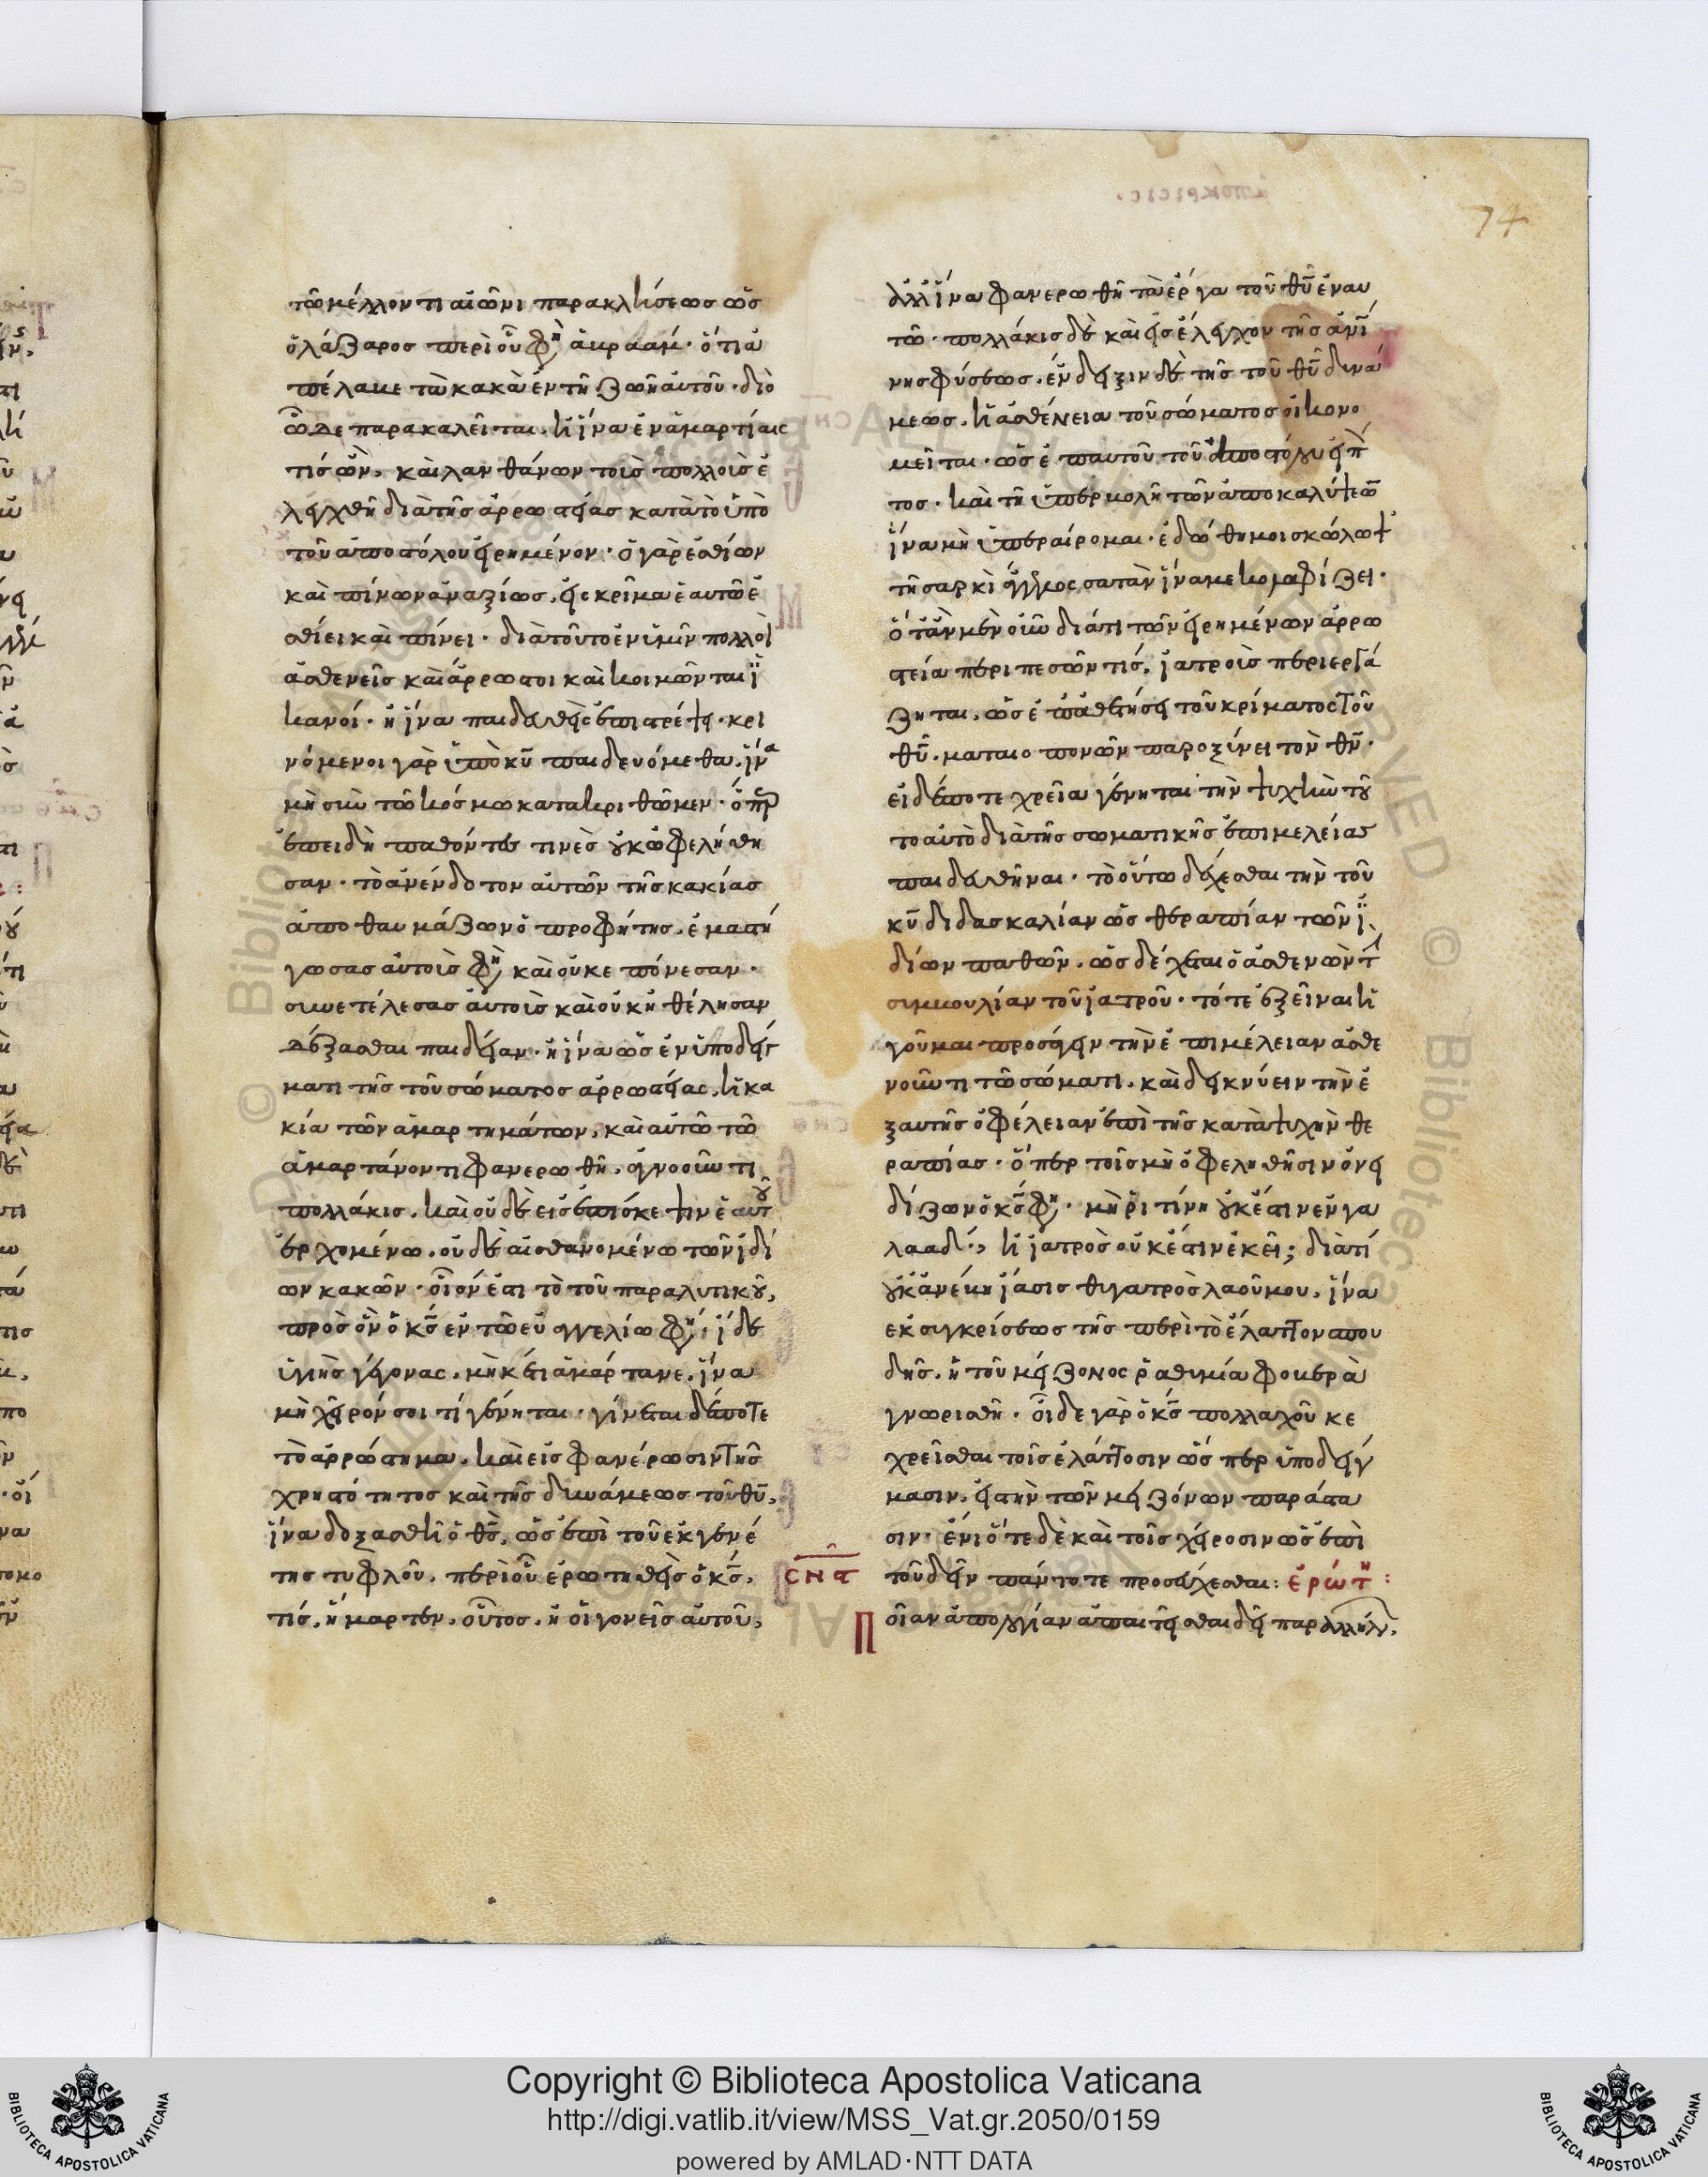 ἀπόκρισις.
74
τῶ μέλλοντι αἰῶνι παρακλίσεως ὡς
ὁ λάζαρος περὶ οὗ φη ἀβραάμ· ὅτι ἀ
πέλαβε τὰ κακὰ ἐν τῆ ζωῆ αὐτοῦ· διὸ
ὧδε παρακαλεῖται. ἢ ἵνα ἐν ἁμαρτίαις
τίς ὢν, καὶ λανθάνων τοῖς πολλοῖς ἐ
λεγχθῆ διὰ τῆς ἀρρωστείας κατὰ τὸ ὑπὸ
τοῦ ἀποστόλου εἰρημένον· ὁ γὰρ ἐσθίων
καὶ πίνων ἀναξίως, εἰς κρῖμα ἑαυτῶ ἐ
σθίει καὶ πίνει· διὰ τοῦτο ἐν ὑμῖν πολλοὶ
ἀσθενεῖς καὶ ἄρρωστοι καὶ κοιμῶνται ἱ
κανοί· ἢ ἵνα παιδευθεὶς ἐπιστρέψει· κρι
νόμενοι γὰρ ὑπὸ κῦ παιδευόμεθα, ἵνα
μὴ σὺν τῶ κόσμω κατακριθῶμεν· ὅπερ
ἐπειδὴ παθόντες τινὲς οὐκ ὠφελήθη
σαν· τὸ ἀνένδοτον αὐτῶν τῆς κακίας
ἀποθαυμάζων ὁ προφήτης, ἐμαστή
γωσας αὐτοὺς φη, καὶ οὐκ ἐπόνεσαν·
συνετέλεσας αὐτοὺς καὶ οὐκ ἠθέλησαν
δέξασθαι παιδείαν· ἢ ἵνα ὡς ἐν ὑποδείγ
ματι τῆς τοῦ σώματος ἀρρωστείας, ἡ κα
κία τῶν ἁμαρτημάτων, καὶ αὐτῶ τῶ
ἁμαρτάνοντι φανερωθῆ, ἀγνοοῦντι
πολλάκις, καὶ οὐδὲ εἰς ἐπίσκεψιν ἑαυτοῦ
ἐρχομένω, οὐδὲ αἰσθανομένω τῶν ἰδί
ων κακῶν· οἷον ἐστι τὸ τοῦ παραλυτικοῦ,
πρὸς ὃν ὁ κς ἐν τῶ εὐαγγελίω φη, ἴδε
ὑγιὴς γέγονας, μηκέτι ἁμάρτανε, ἵνα
μὴ χεῖρόν σοι τί γένηται· γίνεται δέ ποτε
τὸ ἀρρώστημα, καὶ εἰς φανέρωσιν τῆς
χρηστότητος καὶ τῆς δυνάμεως τοῦ θῦ,
ἵνα δοξασθῆ ὁ θς, ὡς ἐπὶ τοῦ ἐκ γενέ
της τυφλοῦ, περὶ οὗ ἐρωτηθεὶς ὁ κς,
τίς, ἥμαρτεν, οὗτος, ἢ οἱ γονεῖς αὐτοῦ,
ἀλλ ἵνα φανερωθῆ τὰ ἔργα τοῦ θῦ ἐν αυ
τῶ· πολλάκις δὲ καὶ εἰς ἔλεγχον τῆς ἀνί
νης φύσεως, ἔνδειξιν δὲ τῆς τοῦ θῦ δυνά
μεως, ἡ ἀσθένεια τοῦ σώματος οἰκονο
μεῖται· ὡς ἐπ αυτοῦ τοῦ ἀποστόλου εἰπόν
τος· καὶ τῆ ὑπερβολῆ τῶν ἀποκαλύψεων
ἵνα μὴ ὑπεραίρομαι· ἐδώθη μοι σκώλοψ
τῆ σαρκὶ ἄγγελος σατὰν ἵνα με κολαφίζει·
ὅταν μὲν οὖν διά τι τῶν εἰρημένων ἀρρω
στεία περιπεσῶν τίς, ἰατροῖς περιεργά
ζηται, ὡς ἐπ ἀθετήσει τοῦ κρίματος τοῦ
θῦ, ματαιοπονῶν παροξύνει τὸν θν·
εἰ δέ ποτε χρεία γένηται τὴν ψυχὴν τοῦ
το αὐτὸ διὰ τῆς σωματικῆς ἐπιμελείας
παιδευθῆναι· τὸ οὕτω δέχεσθαι τὴν τοῦ
κῦ διδασκαλίαν ὡς θεραπίαν τῶν ἰ
δίων παθῶν, ὡς δέχεται ὁ ἀσθενῶν τὴν
συμβουλίαν τοῦ ἰατροῦ· τότε ἐξεῖναι ἡ
γοῦμαι προσάγειν τὴν ἐπιμέλειαν ἀσθε
νοῦντι τῶ σώματι, καὶ δεικνύειν τὴν ἐ
ξ αυτῆς ὀφέλειαν ἐπὶ τῆς κατὰ ψυχὴν θε
ραπίας· ὅπερ τοῖς μὴ ὀφεληθῆσιν ὀνει
δίζων ὁ κς φη· μὴ ῥιτίνη οὐκ ἔστιν ἐν γα
λααδ, ἢ ἰατρὸς οὐκ ἔστιν ἐκεῖ; διὰ τί
οὐκ ἀνέβη ἴασις θυγατρὸς λαοῦ μου, ἵνα
ἐκ συγκρίσεως τῆς περὶ τὸ ἔλαττον σπου
δῆς, ἢ τοῦ μείζονος ῥαθυμία φοβερὰ
γνωρισθῆ· οἶδε γὰρ ὁ κς πολλαχοῦ κε
χρεῖσθαι τοῖς ἐλάττοσιν ὥσπερ ὑποδείγ
μασιν, εἰς τὴν τῶν μειζόνων παράστα
σιν· ἐνίοτε δὲ καὶ τοῖς χείροσιν ὡς ἐπὶ
τοῦ δεῖν πάντοτε προσεύχεσθαι: ἐρώτη:
σνα
Ποίαν ἀπολογίαν ἀπαιτεῖσθαι δεῖ παρ ἀλλήλων,
Copyright © Biblioteca Apostolica Vaticana
http://digi.vatlib.it/view/MSS_Vat.gr.2050/0159
powered by AMLAD·NTT DATA
BIBLIOTECA APOSTOLICA VATICANA
BIBLIOTECA APOSTOLICA VATICANA